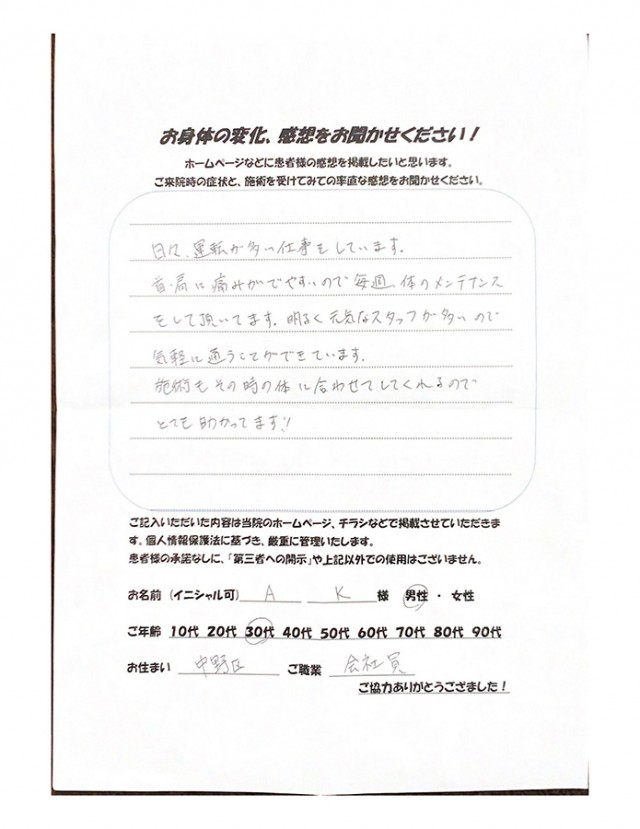 お身体の変化、感想をお聞かせください！
ホームページなどに患者様の感想を掲載したいと思います。
ご来院時の症状と、施術を受けてみての率直な感想をお聞かせください。
日々、運転が多い仕事をしています。
首・肩に痛みがでやすいので毎週、体のメンテナンス
をして頂いてます。明るく元気なスタッフが多いので
気軽に通うことができています。
施術もその時の体に合わせてしてくれるので
とても助かってます!!
ご記入いただいた内容は当院のホームページ、チラシなどで掲載させていただきま
す。個人情報保護法に基づき、厳重に管理いたします。
患者様の承諾なしに、「第三者への開示」や上記以外での使用はございません。
お名前（イニシャル可） A K 様 男性 ・ 女性
ご年齢 10代 20代 30代 40代 50代 60代 70代 80代 90代
お住まい 中野区 ご職業 会社員
ご協力ありがとうござました！